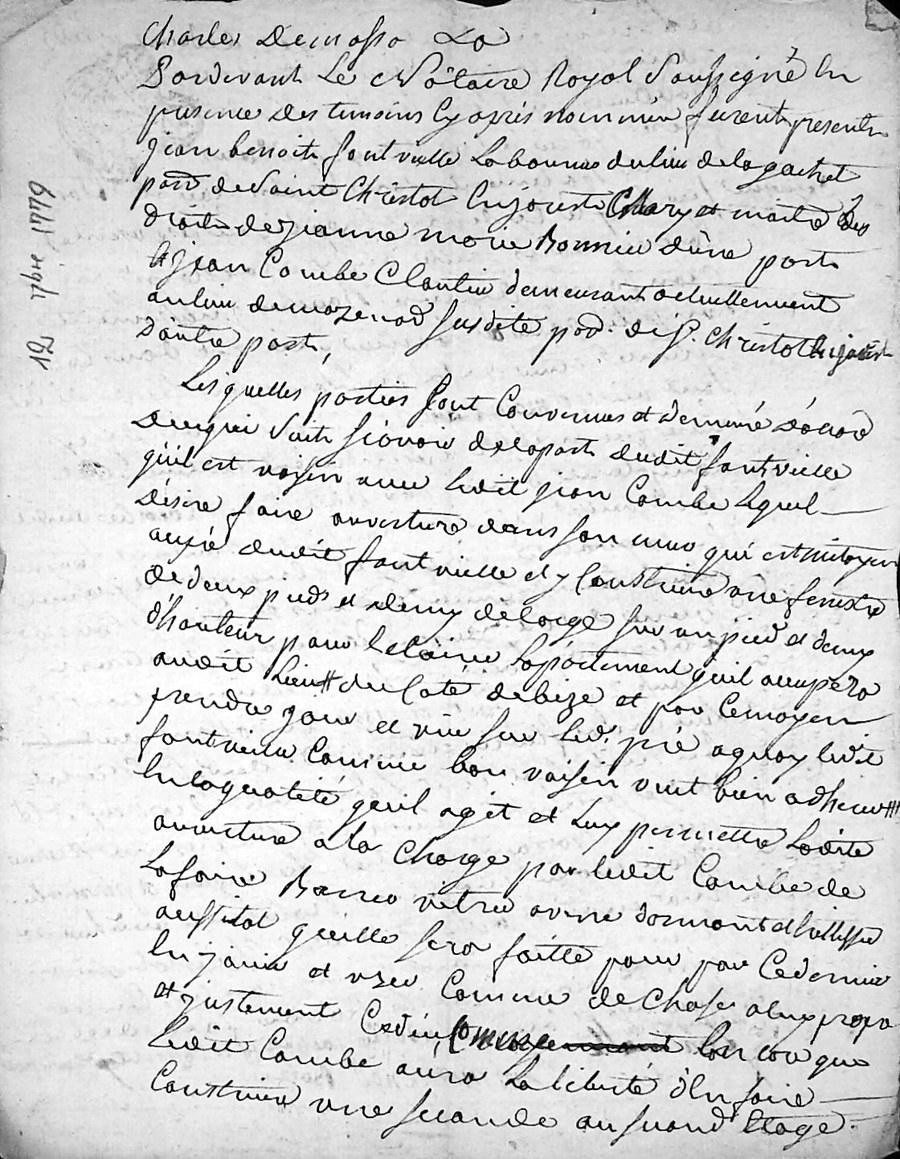 Charles Demasso
Pardevant Le Nótaire Royal Soussigné En
presence des temoins Cy aprés nommés furent presents
jean benoit fontvielle Laboureur du lieu de la gachet
parr de Saint Christot En jarest Mary et maitre des
droits de jeanne marie Bonnier d'une part
& jean Combe Cloutier demeurant actuellement
au lieu de mazenod susdite par: de St. Christot En jarest
D'autre part,
Les quelles parties sont Convenues et Demuré d'acord
De ce qui Suit sçavoir de la part dudit fontvielle
qu'il est voisin avec Ledit jean Combe Lequel
Désire faire ouverture dans son mur qui est mitoyen
au pré dudit fontvielle et y Construire une fenestre
de deux pieds et demy de large sur un pied et demy
d'hauteur pour Eclairer L'apartement qu'il occupera
audit Lieu du Coté de bize et par Ce moyen
prendre jour et vüe sur led. pré a quoy Ledit
fontvielle Comme bon voisin veut bien adherer
En la qualité qu'il agit et Luy permettre Ladite
ouverture a la Charge par Ledit Combe de
La faire Barrer vitrer a verre dormant et
aussitot qu'elle sera faitte pour par Ce dernier
En jouir et user Comme de Chose a luy propre
et justement Encore que
Ledit Combe aura La liberté d'En faire
Construire une seconde au second Etage.
12 9bre 1779